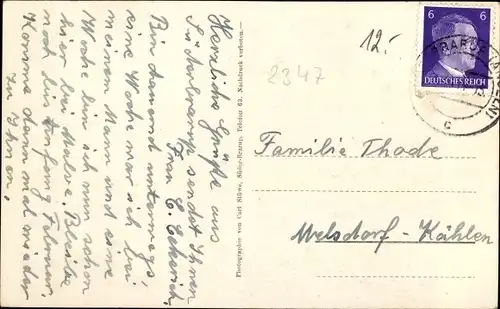 Herzliche Grüße aus
Süderbrarup sendet Ihnen
Frau E.
Bin dauernd unterwegs,
eine Woche war ich bei
meinem Mann und eine
Woche bin ich nun schon
hier bei Bleibe
noch bis Anfang Februar.
Komme dann mal wieder
zu Ihnen.
Photographie von Carl Stüwe, Süder-Brarup, Telefon 62. Nachdruck verboten.
12.-
2347
6 6
DEUTSCHES REICH
BRARUP
c
Familie Thode
Melsdorf-Kählen